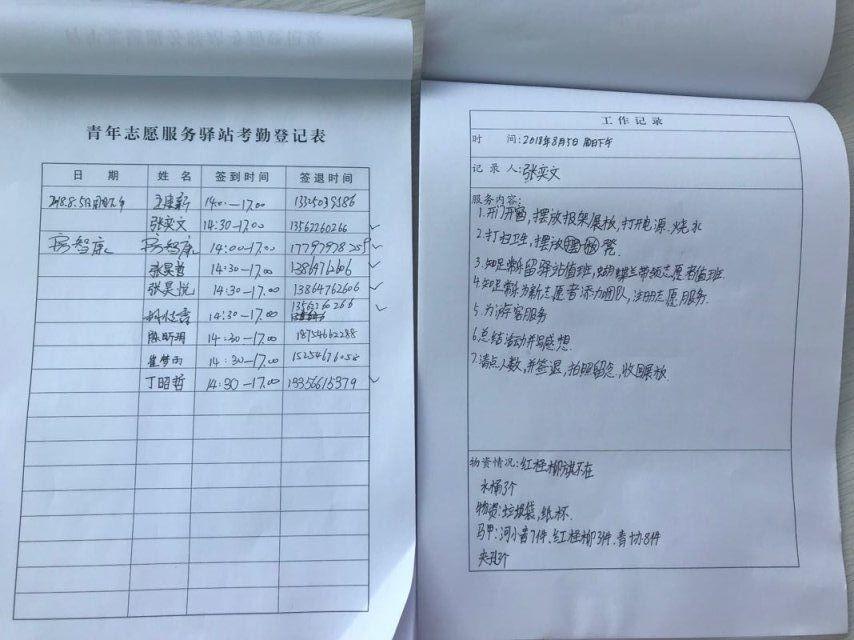 青年志愿服务驿站考勤登记表
日 期 姓 名 签到时间 签退时间
2018.8.5日周日下午 王唐新 14:00-17:00
张奕文 14:30-17:00 13562260266
房智康 房智康 14:00-17:00
张昊哲 14:30-17:00 13864762606
张昊悦 14:30-17:00 13864762606
14:30-17:00 13562260266
陈昕玥 14:30-17:00 18754662288
崔梦雨 14:30-17:00
丁昭哲 14:30-17:00 13356615379
工作记录
时 间:2018年8月5日 周日下午
记录人:张奕文
服务内容:
1.开门开窗,摆放报架/展板,打开电源.烧水
2.打扫卫生,摆放凳
3.知足常乐留驿站值班,带领志愿者值班.
4.知足常乐为新志愿者添加团队,注册志愿服务.
5.为游客服务
6.总结活动并写感想.
7.清点人数,并签退,拍照留念,收回展板.
物资情况:红柽柳旗不在
水桶3个
物资:垃圾袋,纸杯.
马甲:河小青7件、红柽柳3件,青协8件
夹孔3个